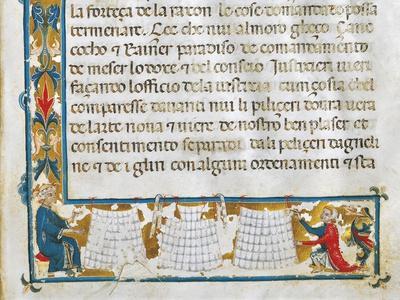 la forteça de la raxon le cose domandate o possa
termenare. Çoe che nui almoro gbeço Çane
cocho & Rainer paradiso de comandamento
de meser lo doxe & del conseio Iustixieri uieri
façando lofficio dela iusticia cum çosia che
comparesse dauanti nui li piliçeri doura uera
de larte noua & uiere de nostro ben plaser et
consentimento separadi da li peliçeri dagneline
ne & de i gliri con alguni ordenamenti & sta